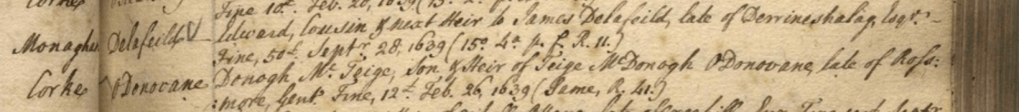 Fine 10s. Feb. 20, 1639 (15.
Monaghan Delafeild Edward, Cousin & next Heir to James Delafeild, late of Derrineshalag, Esqr.
Fine, 50s. Septr. 28, 1639 (15o. 4a. p. f. R. 11.)
Corke O Donovane Donogh Mc. Teige, Son & Heir of Teige McDonogh O Donovane, late of Ross:
:more, Gent. Fine, 12s. Feb. 26, 1639 (Same, R. 41.)